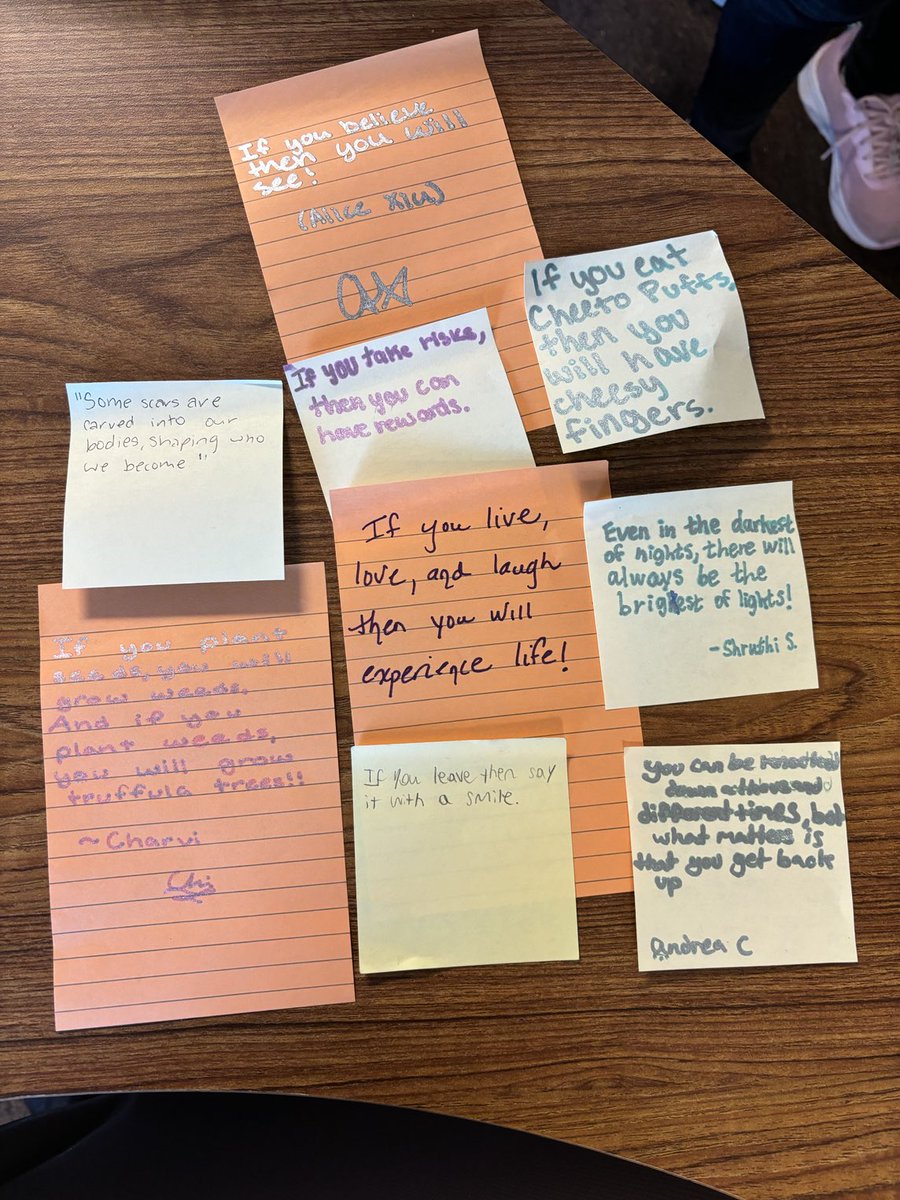 If you believe
then you will
see!
(Alice Xiu)
AX
If you eat
Cheeto Puffs,
then you
will have
cheesy
fingers.
If you take risks,
then you can
have rewards.
"Some scars are
carved into our
bodies, shaping who
we become"
If you live,
love, and laugh
then you will
experience life!
Even in the darkest
of nights, there will
always be the
brightest of lights!
-Shruthi S.
If you plant
seeds, you will
grow weeds.
And if you
plant weeds,
you will grow
truffula trees!!
~Charvi
If you leave then say
it with a smile.
You can be
down a thousand
different times, but
what matters is
that you get back
up
Andrea C